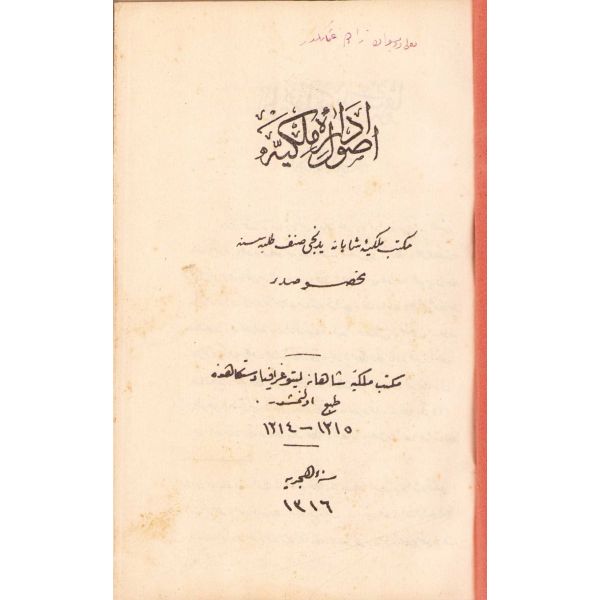 اصول اداره‌ٔ ملكيه
مكتب ملكيهٔ شاهانه يدنجى صنف طلبه‌سنه
مخصوصدر
مكتب ملكيهٔ شاهانه ليتوغرافيا دستكاهنده
طبع اولنمشدر .
١٣١٥ — ١٣١٤
سنهٔ هجريه
١٣١٦